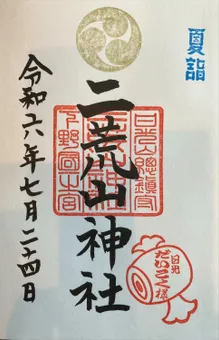 夏詣
二荒山神社
令和六年七月二十四日
日光山總鎮守
下野國一之宮
日光
だいこく様